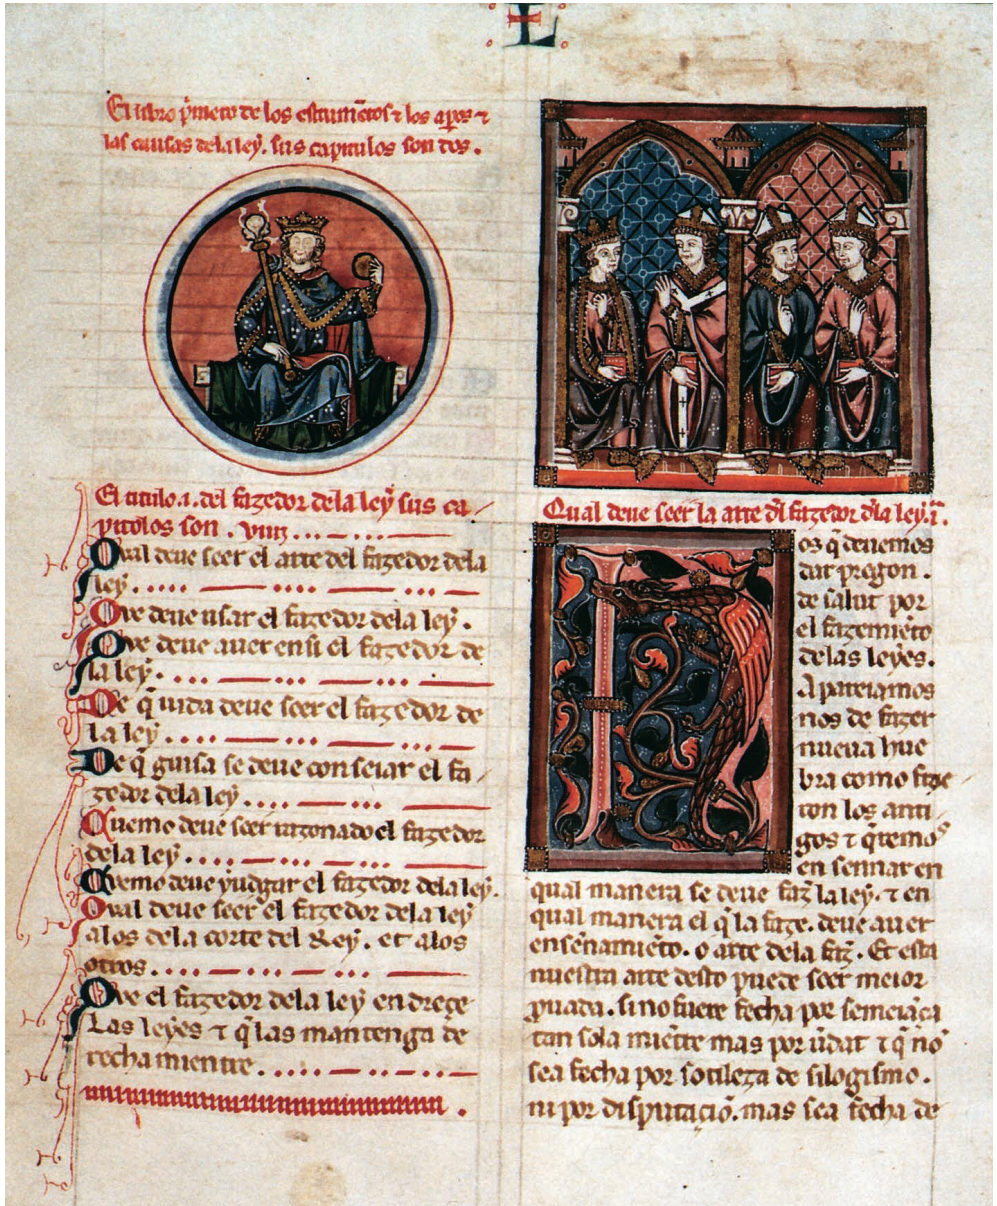 L
El libro p̃mero de los estrumẽtos ⁊ los
las causas dela ley. sus capitulos son dos.
El titulo .i. del fazedor dela ley sus ca
pitolos son . viiii
Qval deue seer el arte del fazedor dela
ley.
Qve deue usar el fazedor dela ley.
Qve deue auer en si el fazedor de
la ley.
De q̃ uida deue seer el fazedor de
la ley.
De q̃ guisa se deue conseiar el fa
zedor dela ley.
Quemo deue seer razonado el fazedor
dela ley.
Qvemo deue yudgar el fazedor dela ley.
Qval deue seer el fazedor dela ley
alos dela corte del Rey. et alos
otros.
Qve el fazedor dela ley endreçe
Las leyes ⁊ q̃ las mantenga de
recha mientre.
Qual deue seer la arte dl̃ fazedor dl̃a ley. i.
os q̃ deuemos
dar pregon.
de salut por
el fazemiẽto
delas leyes.
Apareiamos
nos de fazer
nueua hue
bra como fizie
ron los anti
gos ⁊ q̃remos
en sennar en
qual manera se deue faz̃ la ley. ⁊ en
qual manera el q̃ la faze. deue auer
ensẽnamiẽto. o arte dela faz̃. Et esta
nuestra arte desto puede seer meior
p̃uada. si no fuere fecha por semeiãça
tan sola miẽtre mas por ũdat ⁊ q̃ no
sea fecha por sotileza de silogismo.
ni por disputaciõ. mas sea fecha de